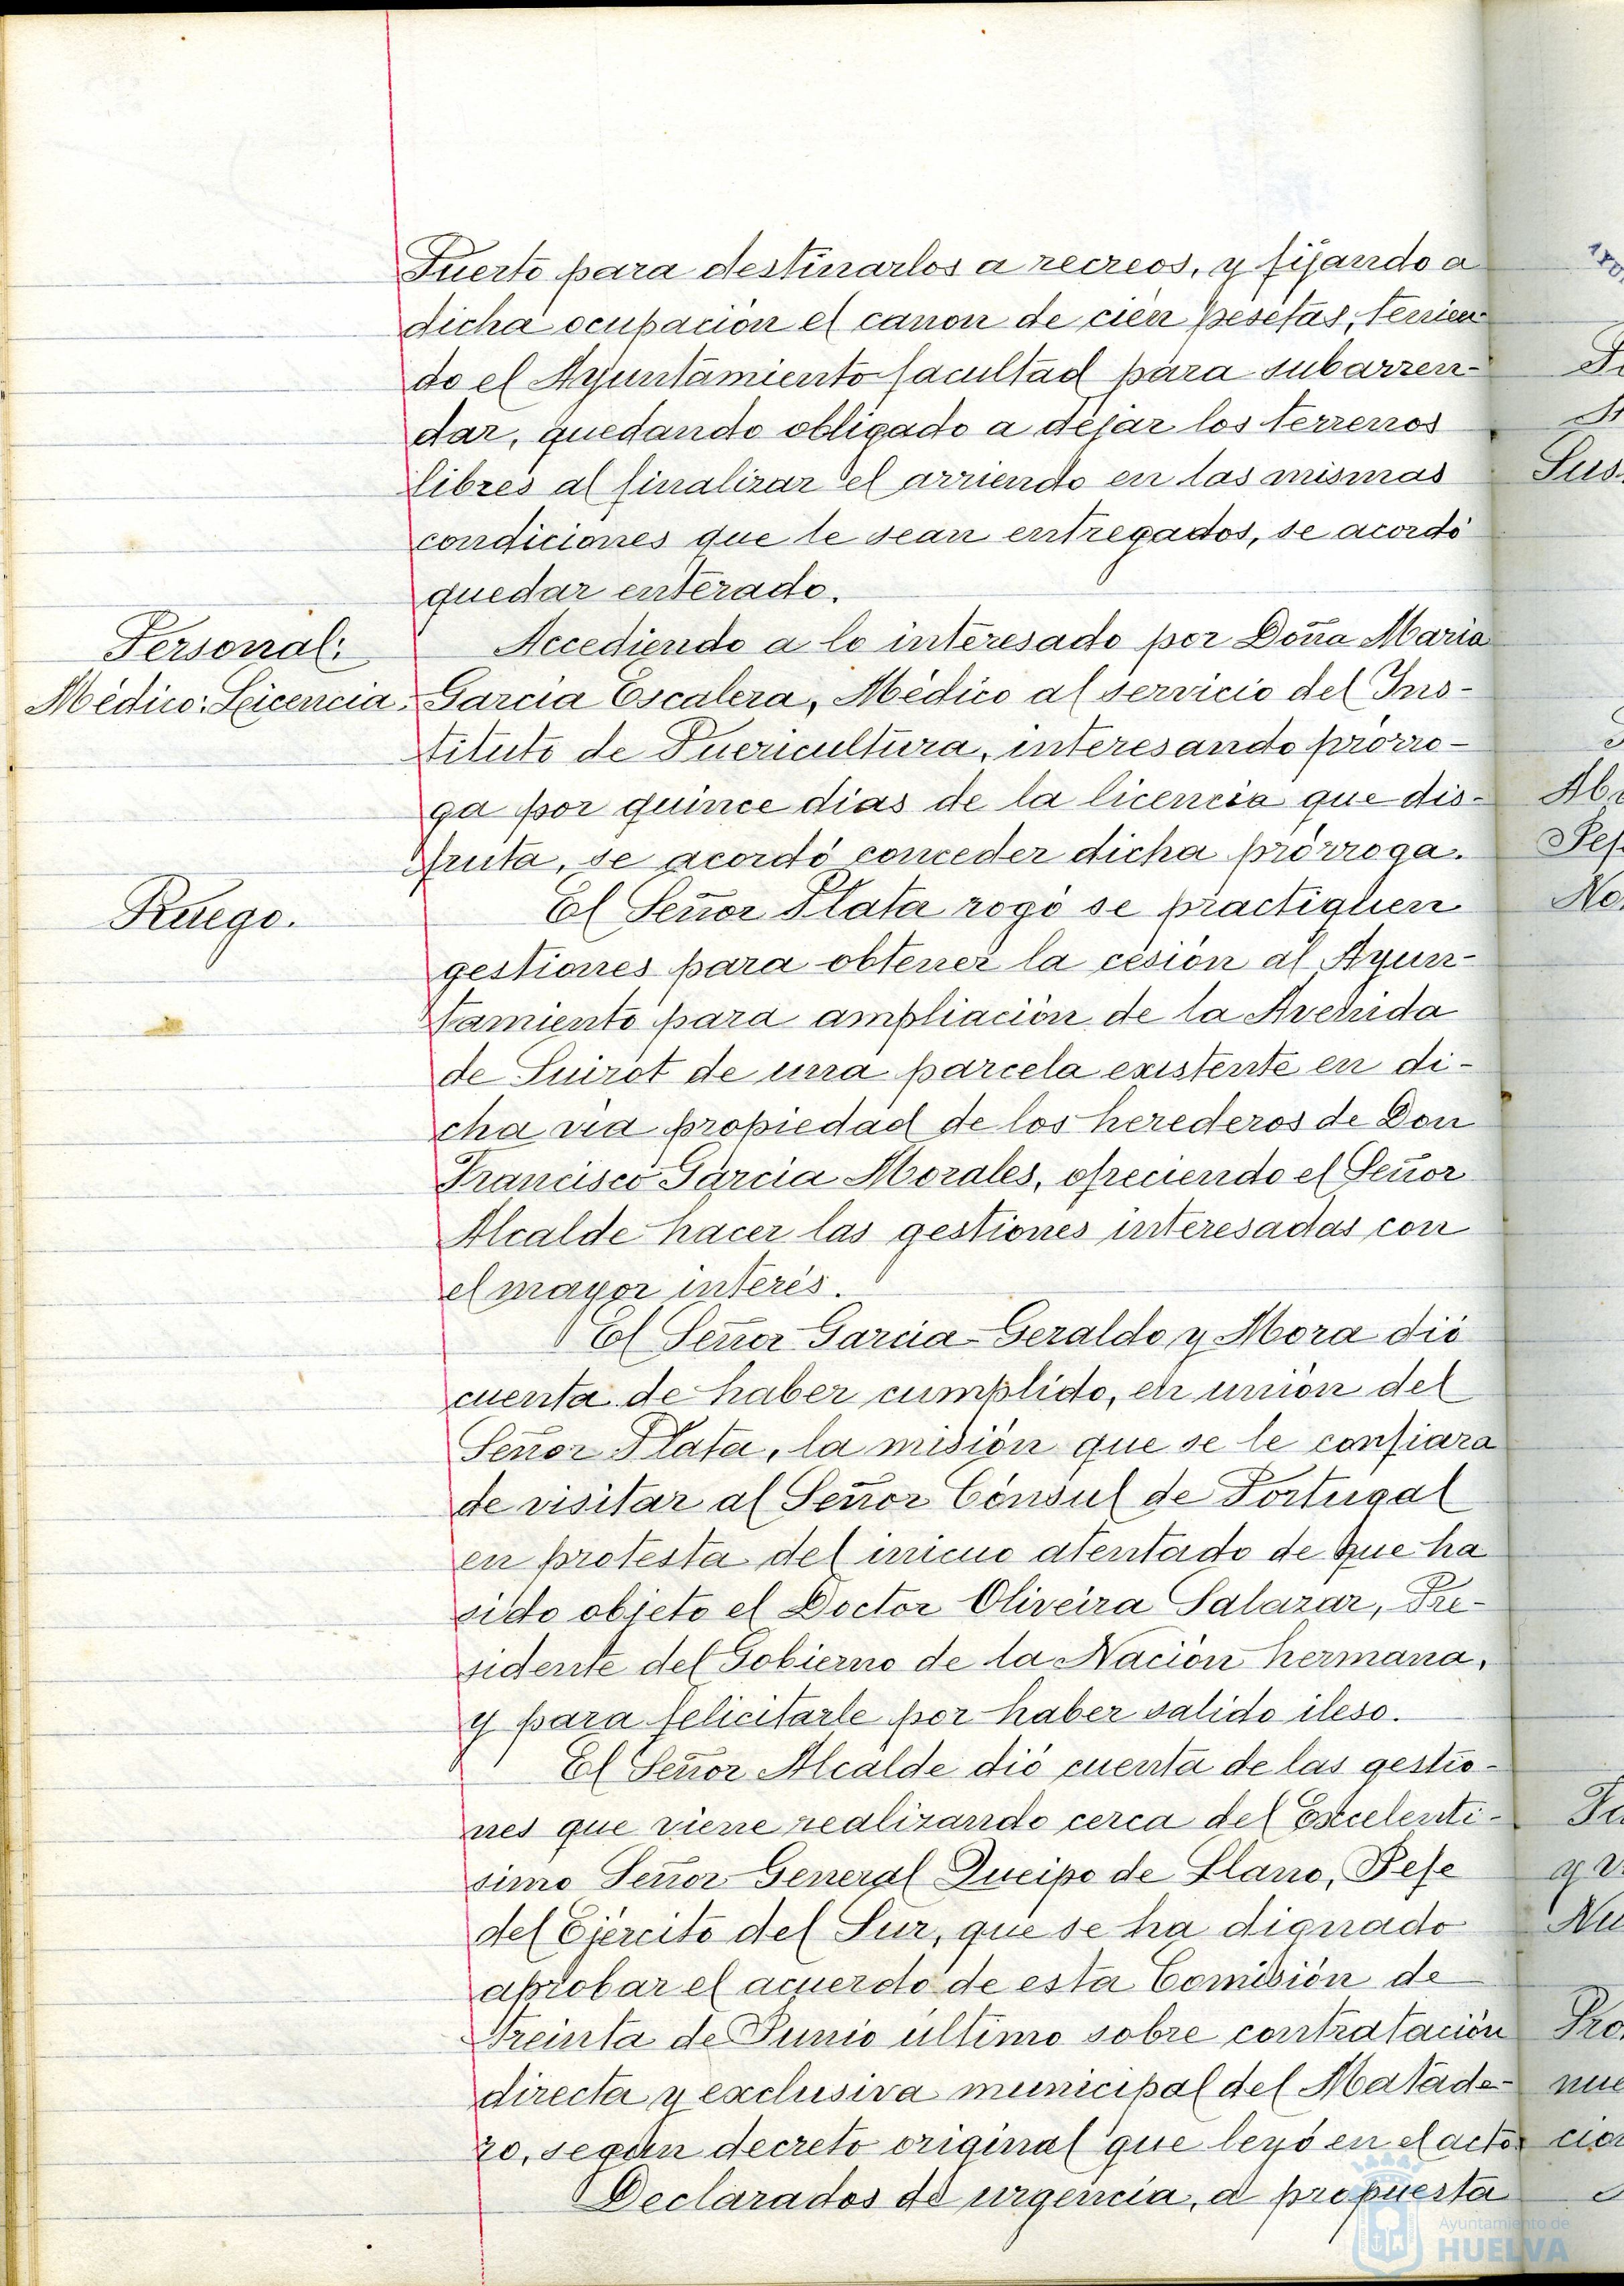 Puerto para destinarlos a recreos, y fijando a
dicha ocupación el canon de cien pesetas, tenien
do el Ayuntamiento facultad para subarren-
dar, quedando obligado a dejar los terrenos
libres al finalizar el arriendo en las mismas
condiciones que le sean entregados, se acordó
quedar enterado.
Personal:
Médico: Licencia.
Accediendo a lo interesado por Doña Maria
Garcia Escalera, Médico al servicio del Ins-
tituto de Puericultura, interesando prórro-
ga por quince dias de la licencia que dis-
fruta, se acordó conceder dicha prórroga.
Ruego.
El Señor Plata rogó se practiquen
gestiones para obtener la cesión al Ayun-
tamiento para ampliación de la Avenida
de Quirot de una parcela existente en di-
cha via propiedad de los herederos de Don
Francisco Garcia Morales, ofreciendo el Señor
Alcalde hacer las gestiones interesadas con
el mayor interés.
El Señor Garcia-Geraldo y Mora dió
cuenta de haber cumplido, en unión del
Señor Plata, la misión que se le confiara
de visitar al Señor Cónsul de Portugal
en protesta del inicuo atentado de que ha
sido objeto el Doctor Oliveira Salazar, Pre-
sidente del Gobierno de la Nación hermana,
y para felicitarle por haber salido ileso.
El Señor Alcalde dió cuenta de las gestio-
nes que viene realizando cerca del Excelenti-
simo Señor General Queipo de Llano, Jefe
del Ejército del Sur, que se ha dignado
aprobar el acuerdo de esta Comisión de
treinta de Junio último sobre contratación
directa y exclusiva municipal del Matade-
ro, según decreto original que leyó en el acto.
Declarados de urgencia, a propuesta
Sus
Ab
Jef
No
y v
Nu
Pro
nue
cio
Ayuntamiento de
HUELVA